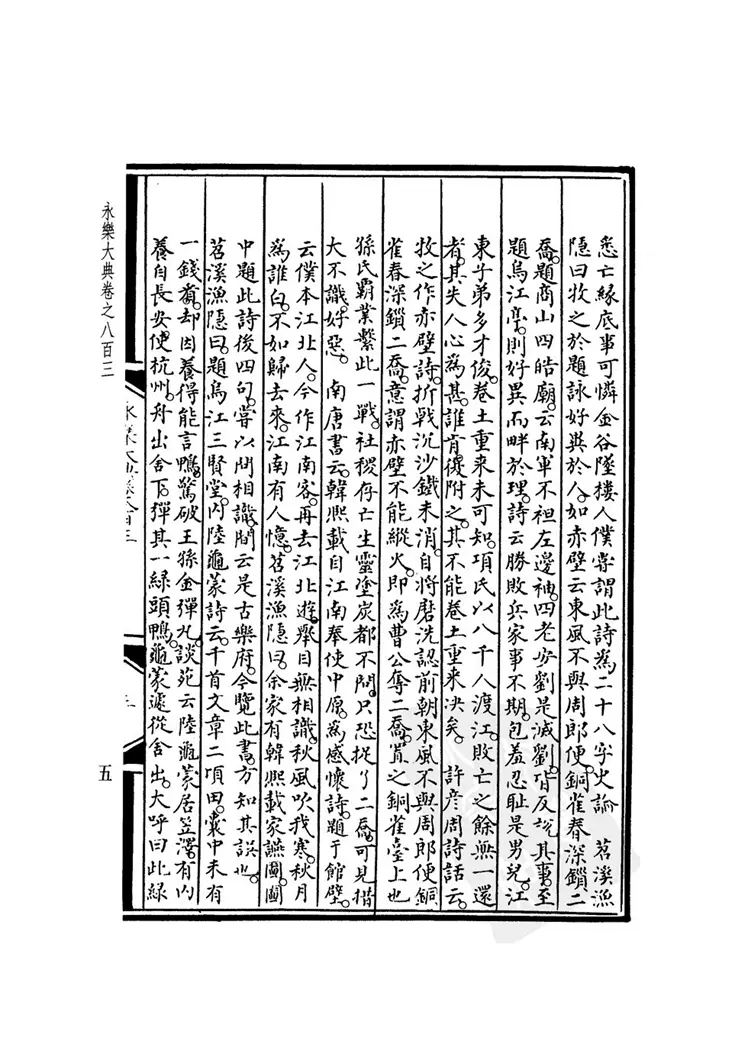 悉亡緣底事可憐金谷墜樓人僕嘗謂此詩爲二十八字史論　苕溪漁
隱曰牧之於題詠好異於人如赤壁云東風不與周郎便銅雀春深鎖二
喬題商山四皓廟云南軍不袒左邊袖四老安劉是滅劉皆反說其事至
題烏江亭則好異而畔於理詩云勝敗兵家事不期包羞忍恥是男兒江
東子弟多才俊卷土重來未可知項氏以八千人渡江敗亡之餘無一還
者其失人心爲甚誰肯復附之其不能卷土重來決矣　許彥周詩話云
牧之作赤壁詩折戟沉沙鐵未消自將磨洗認前朝東風不與周郎便銅
雀春深鎖二喬意謂赤壁不能縱火即爲曹公奪二喬寘之銅雀臺上也
孫氏霸業繫此一戰社稷存亡生靈塗炭都不問只恐捉了二喬可見措
大不識好惡　南唐書云韓熙載自江南奉使中原爲感懷詩題于館壁
云僕本江北人今作江南客再去江北遊舉目無相識秋風吹我寒秋月
爲誰白不如歸去來江南有人憶苕溪漁隱曰余家有韓熙載家讌圖圖
中題此詩後四句嘗以問相識間云是古樂府今覽此書方知其誤也
苕溪漁隱曰題烏江三賢堂內陸龜蒙詩云千首文章二頃田囊中未有
一錢看却因養得能言鴨驚破王孫金彈丸談苑云陸龜蒙居笠澤有內
養自長安使杭州舟出舍下彈其一綠頭鴨龜蒙遽從舍出大呼曰此綠
永樂大典卷之八百三
五